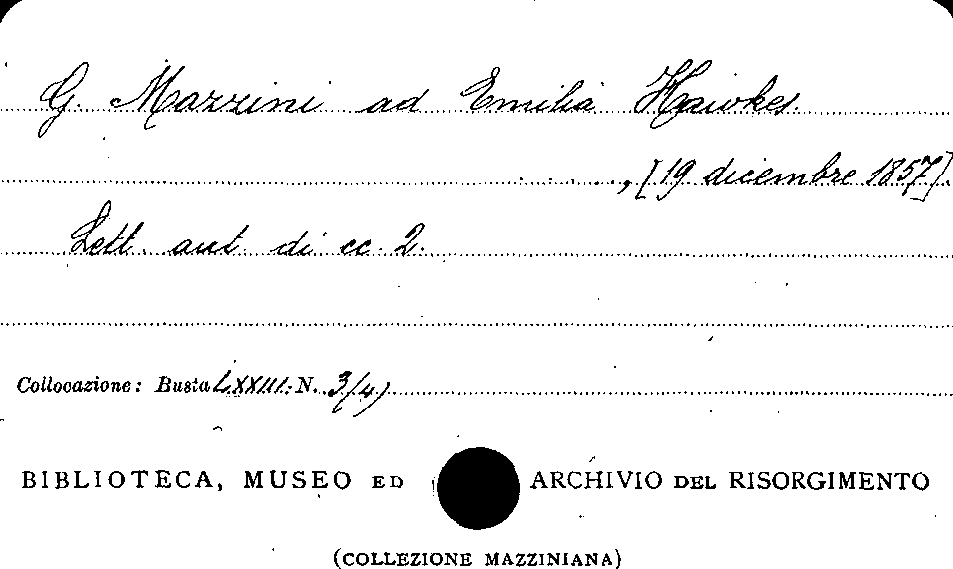 G. Mazzini ad Emilia Hawkes
, [19 dicembre 1857].
Lett. aut. di cc. 2.
Collocazione: Busta LXXIII. N. 3/4)
BIBLIOTECA, MUSEO ED ARCHIVIO DEL RISORGIMENTO
(COLLEZIONE MAZZINIANA)